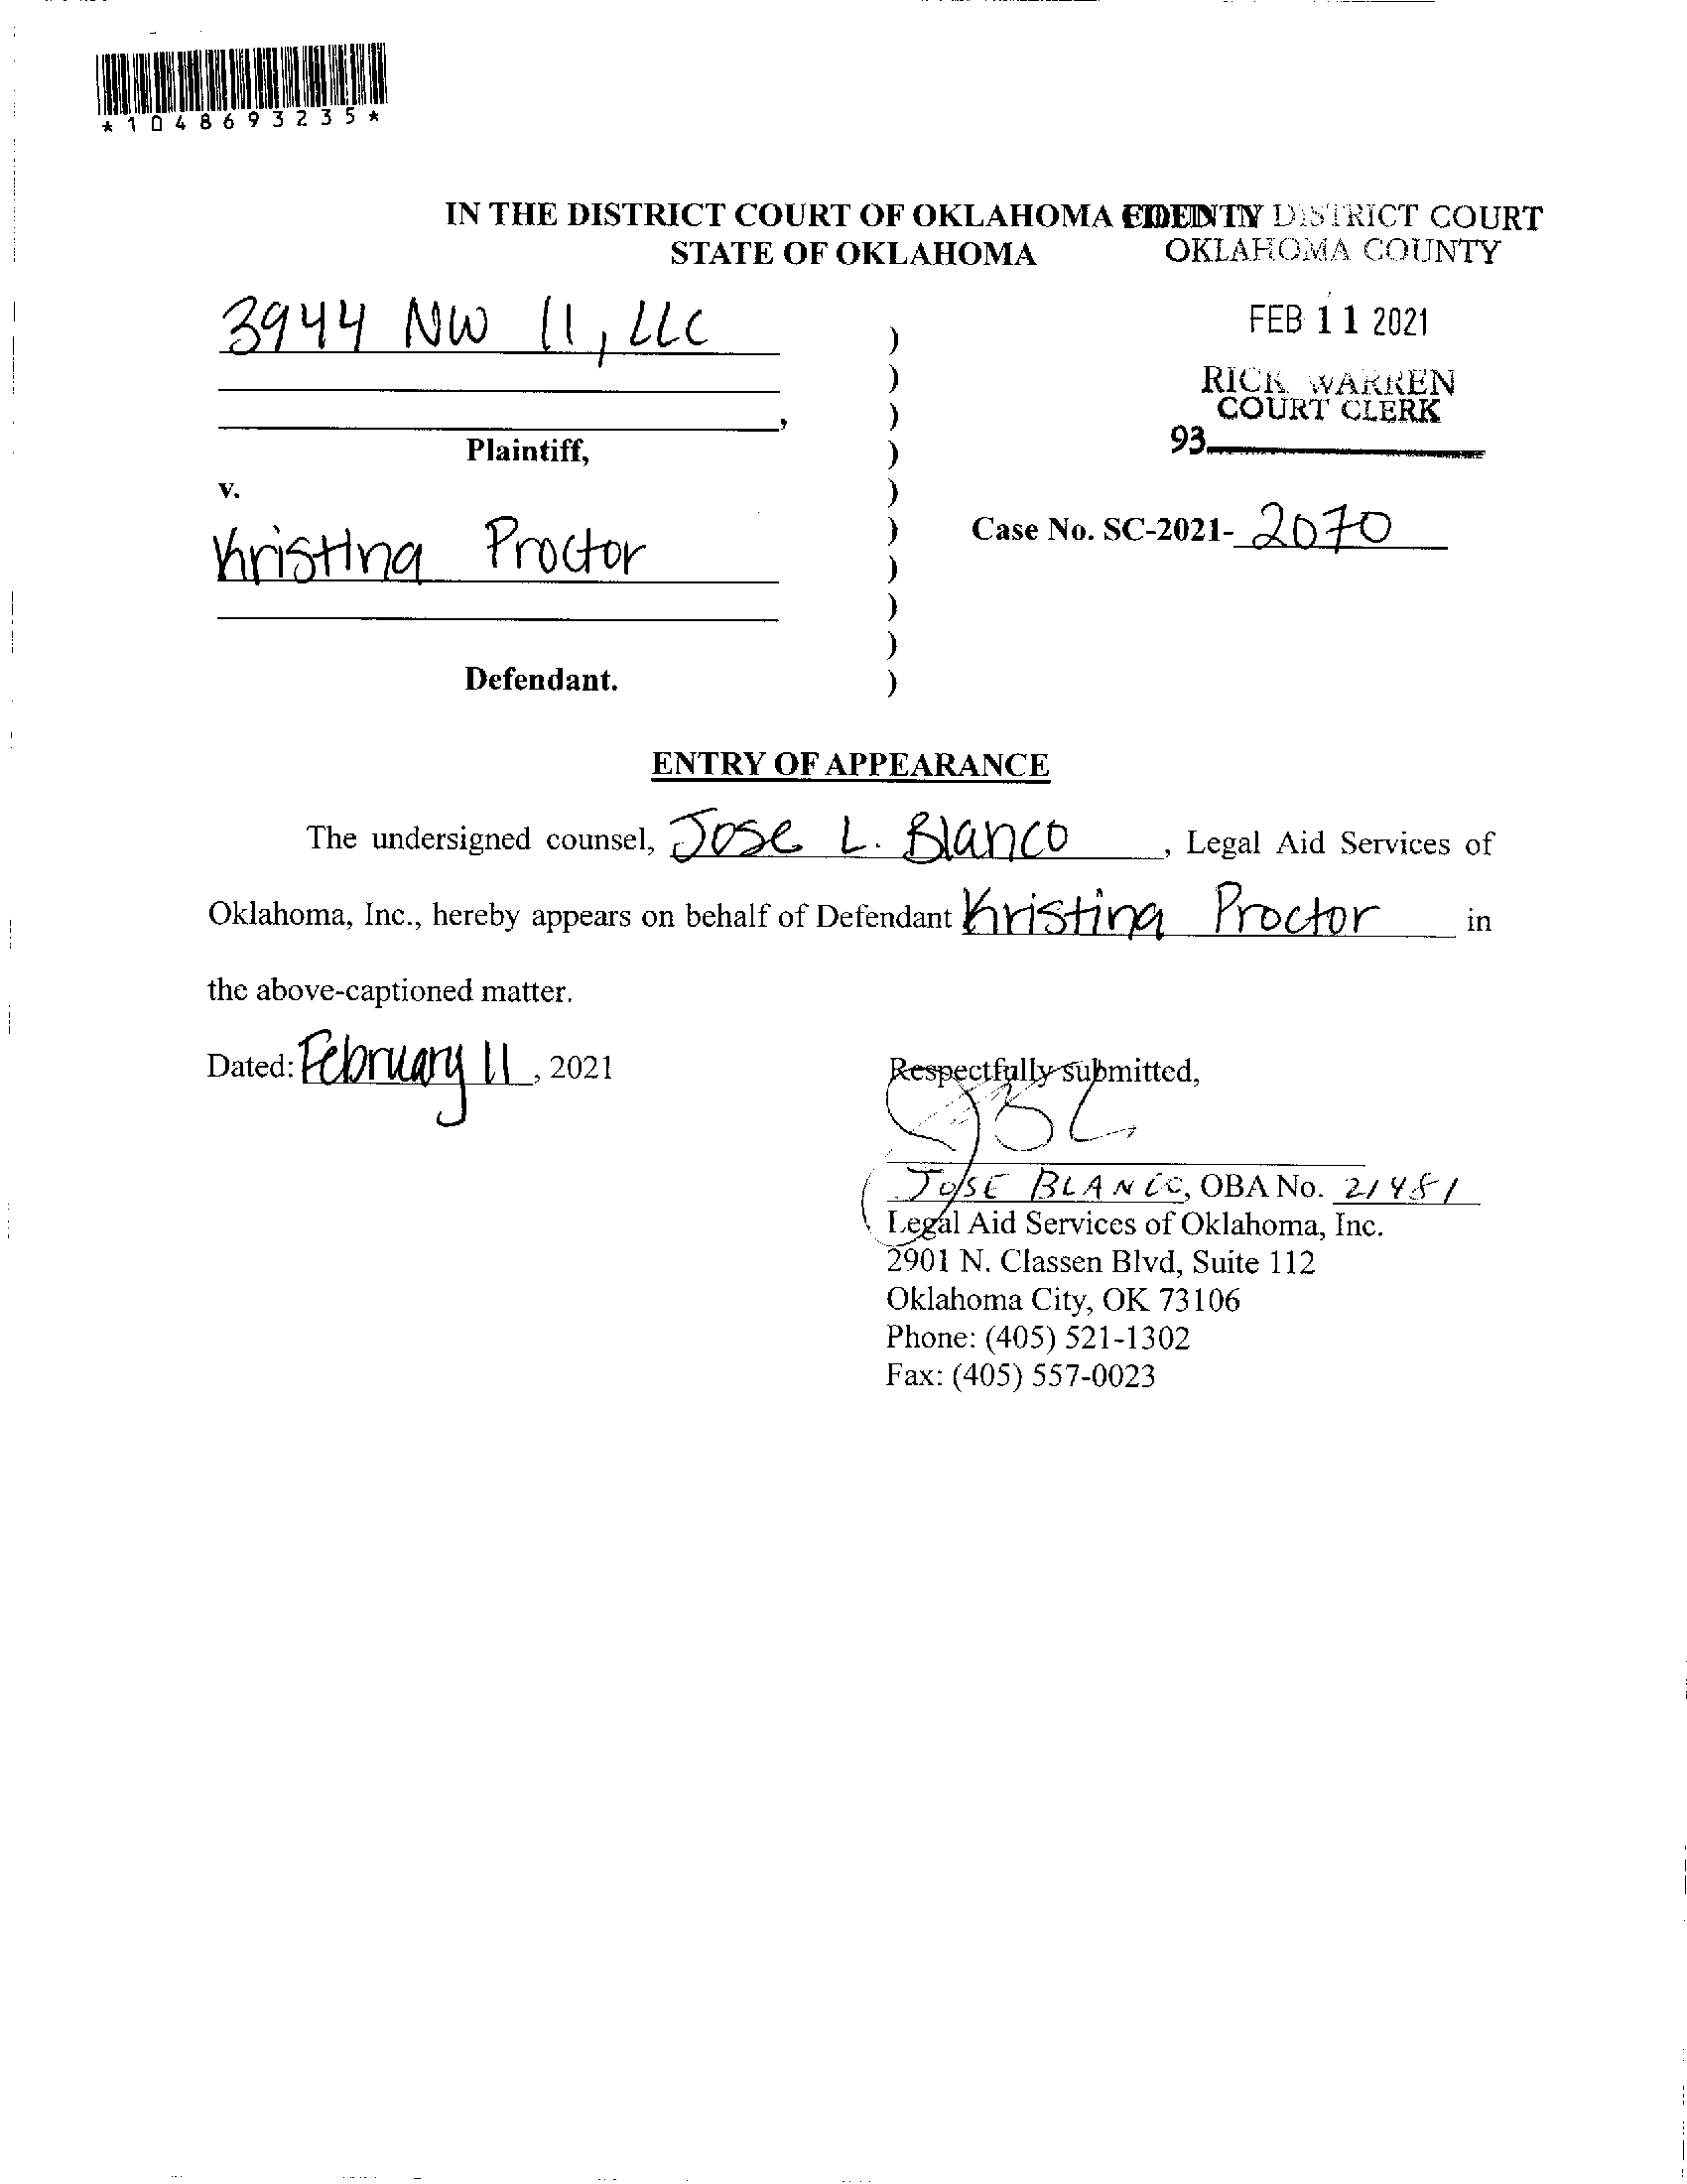 *1048693235*
IN THE DISTRICT COURT OF OKLAHOMA COUNTY
STATE OF OKLAHOMA
FILED IN DISTRICT COURT
OKLAHOMA COUNTY
FEB 11 2021
RICK WARREN
COURT CLERK
93
3944 NW 11, LLC
,
Plaintiff,
v.
Kristina Proctor
Defendant.
)
)
)
)
)
)
)
)
)
)
Case No. SC-2021-2070
ENTRY OF APPEARANCE
The undersigned counsel, Jose L. Blanco, Legal Aid Services of
Oklahoma, Inc., hereby appears on behalf of Defendant Kristina Proctor in
the above-captioned matter.
Dated: February 11, 2021
Respectfully submitted,
JOSE BLANCO, OBA No. 21481
Legal Aid Services of Oklahoma, Inc.
2901 N. Classen Blvd, Suite 112
Oklahoma City, OK 73106
Phone: (405) 521-1302
Fax: (405) 557-0023